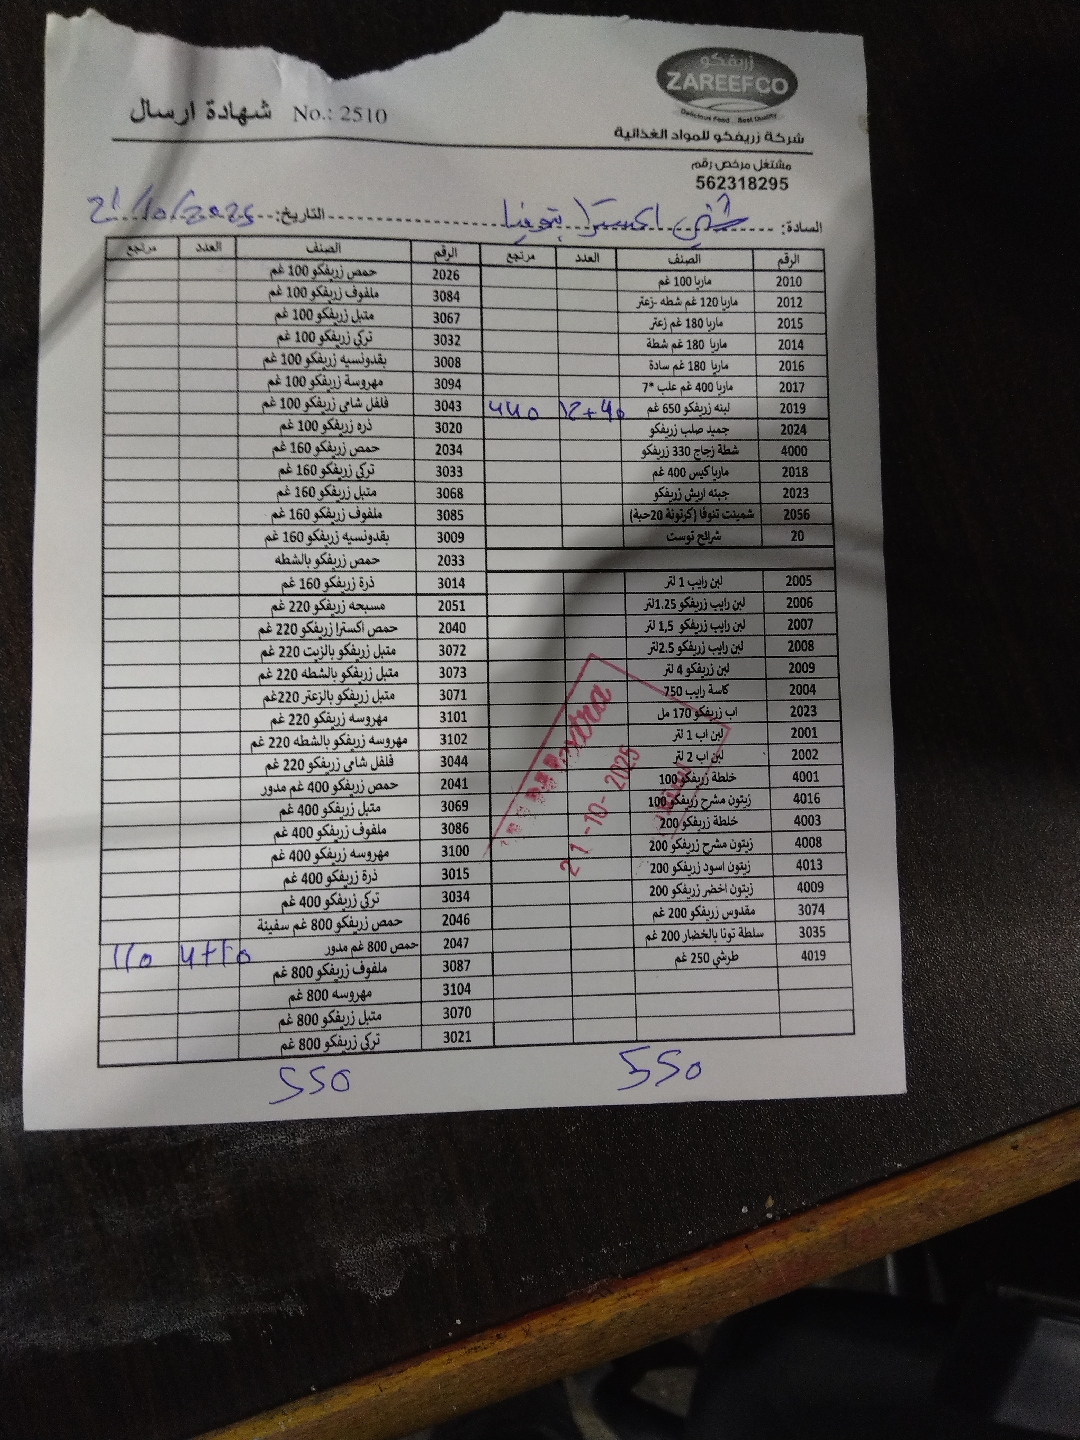 زريفكو
ZAREEFCO
Delicious Food .. Best Quality
شهادة ارسال No.: 2510
شركة زريفكو للمواد الغذائية
مشتغل مرخص رقم
562318295
السادة: اكسترا التاريخ: 21/10/2025
الرقم الصنف العدد مرتجع الرقم الصنف العدد مرتجع
2010 ماريا 100 غم 2026 حمص زريفكو 100 غم
2012 ماريا 120 غم شطه -زعتر 3084 ملفوف زريفكو 100 غم
2015 ماريا 180 غم زعتر 3067 متبل زريفكو 100 غم
2014 ماريا 180 غم شطة 3032 تركي زريفكو 100 غم
2016 ماريا 180 غم سادة 3008 بقدونسيه زريفكو 100 غم
2017 ماريا 400 غم علب *7 3094 مهروسة زريفكو 100 غم
2019 لبنه زريفكو 650 غم 3043 فلفل شامي زريفكو 100 غم
2024 جميد صلب زريفكو 3020 ذره زريفكو 100 غم
4000 شطة زجاج 330 زريفكو 2034 حمص زريفكو 160 غم
2018 ماريا كيس 400 غم 3033 تركي زريفكو 160 غم
2023 جبنه اريش زريفكو 3068 متبل زريفكو 160 غم
2056 شمينت تنوفا (كرتونة 20حبة) 3085 ملفوف زريفكو 160 غم
20 شرائح توست 3009 بقدونسيه زريفكو 160 غم
2033 حمص زريفكو بالشطه
2005 لبن رايب 1 لتر 3014 ذرة زريفكو 160 غم
2006 لبن رايب زريفكو 1.25لتر 2051 مسبحه زريفكو 220 غم
2007 لبن رايب زريفكو 1,5 لتر 2040 حمص اكسترا زريفكو 220 غم
2008 لبن رايب زريفكو 2.5لتر 3072 متبل زريفكو بالزيت 220 غم
2009 لبن زريفكو 4 لتر 3073 متبل زريفكو بالشطه 220 غم
2004 كاسة رايب 750 3071 متبل زريفكو بالزعتر 220غم
2023 اب زريفكو 170 مل 3101 مهروسه زريفكو 220 غم
2001 لبن اب 1 لتر 3102 مهروسه زريفكو بالشطه 220 غم
2002 لبن اب 2 لتر 3044 فلفل شامي زريفكو 220 غم
4001 خلطة زريفكو 100 2041 حمص زريفكو 400 غم مدور
4016 زيتون مشرح زريفكو 100 3069 متبل زريفكو 400 غم
4003 خلطة زريفكو 200 3086 ملفوف زريفكو 400 غم
4008 زيتون مشرح زريفكو 200 3100 مهروسه زريفكو 400 غم
4013 زيتون اسود زريفكو 200 3015 ذرة زريفكو 400 غم
4009 زيتون اخضر زريفكو 200 3034 تركي زريفكو 400 غم
3074 مقدوس زريفكو 200 غم 2046 حمص زريفكو 800 غم سفينة
3035 سلطة تونا بالخضار 200 غم 2047 حمص 800 غم مدور
4019 طرشي 250 غم 3087 ملفوف زريفكو 800 غم
3104 مهروسه 800 غم
3070 متبل زريفكو 800 غم
3021 تركي زريفكو 800 غم
extra
21-10-2025
550 550